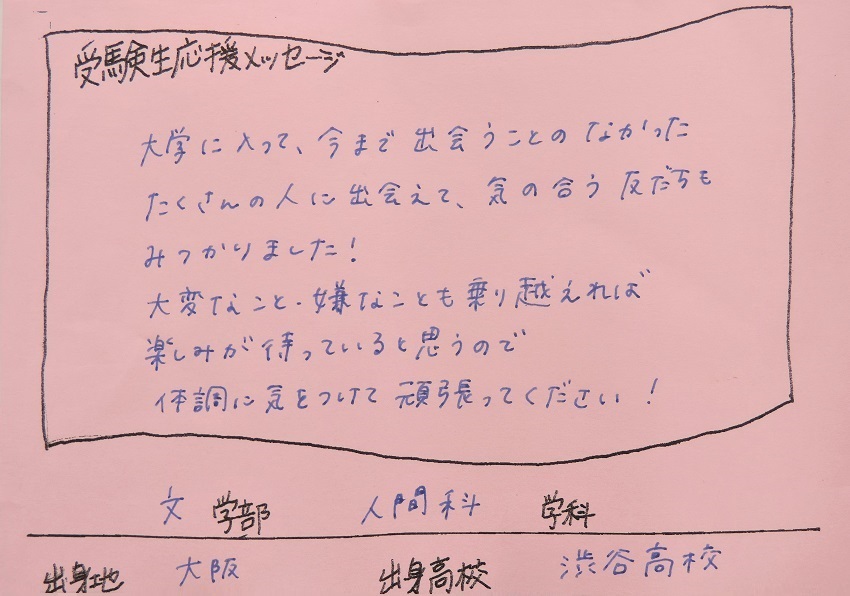 受験生応援メッセージ
大学に入って、今まで出会うことのなかった
たくさんの人に出会えて、気の合う友だちも
みつかりました!
大変なこと・嫌なことも乗り越えれば
楽しみが待っていると思うので
体調に気をつけて頑張ってください!
文 学部 人間科 学科
出身地 大阪 出身高校 渋谷高校